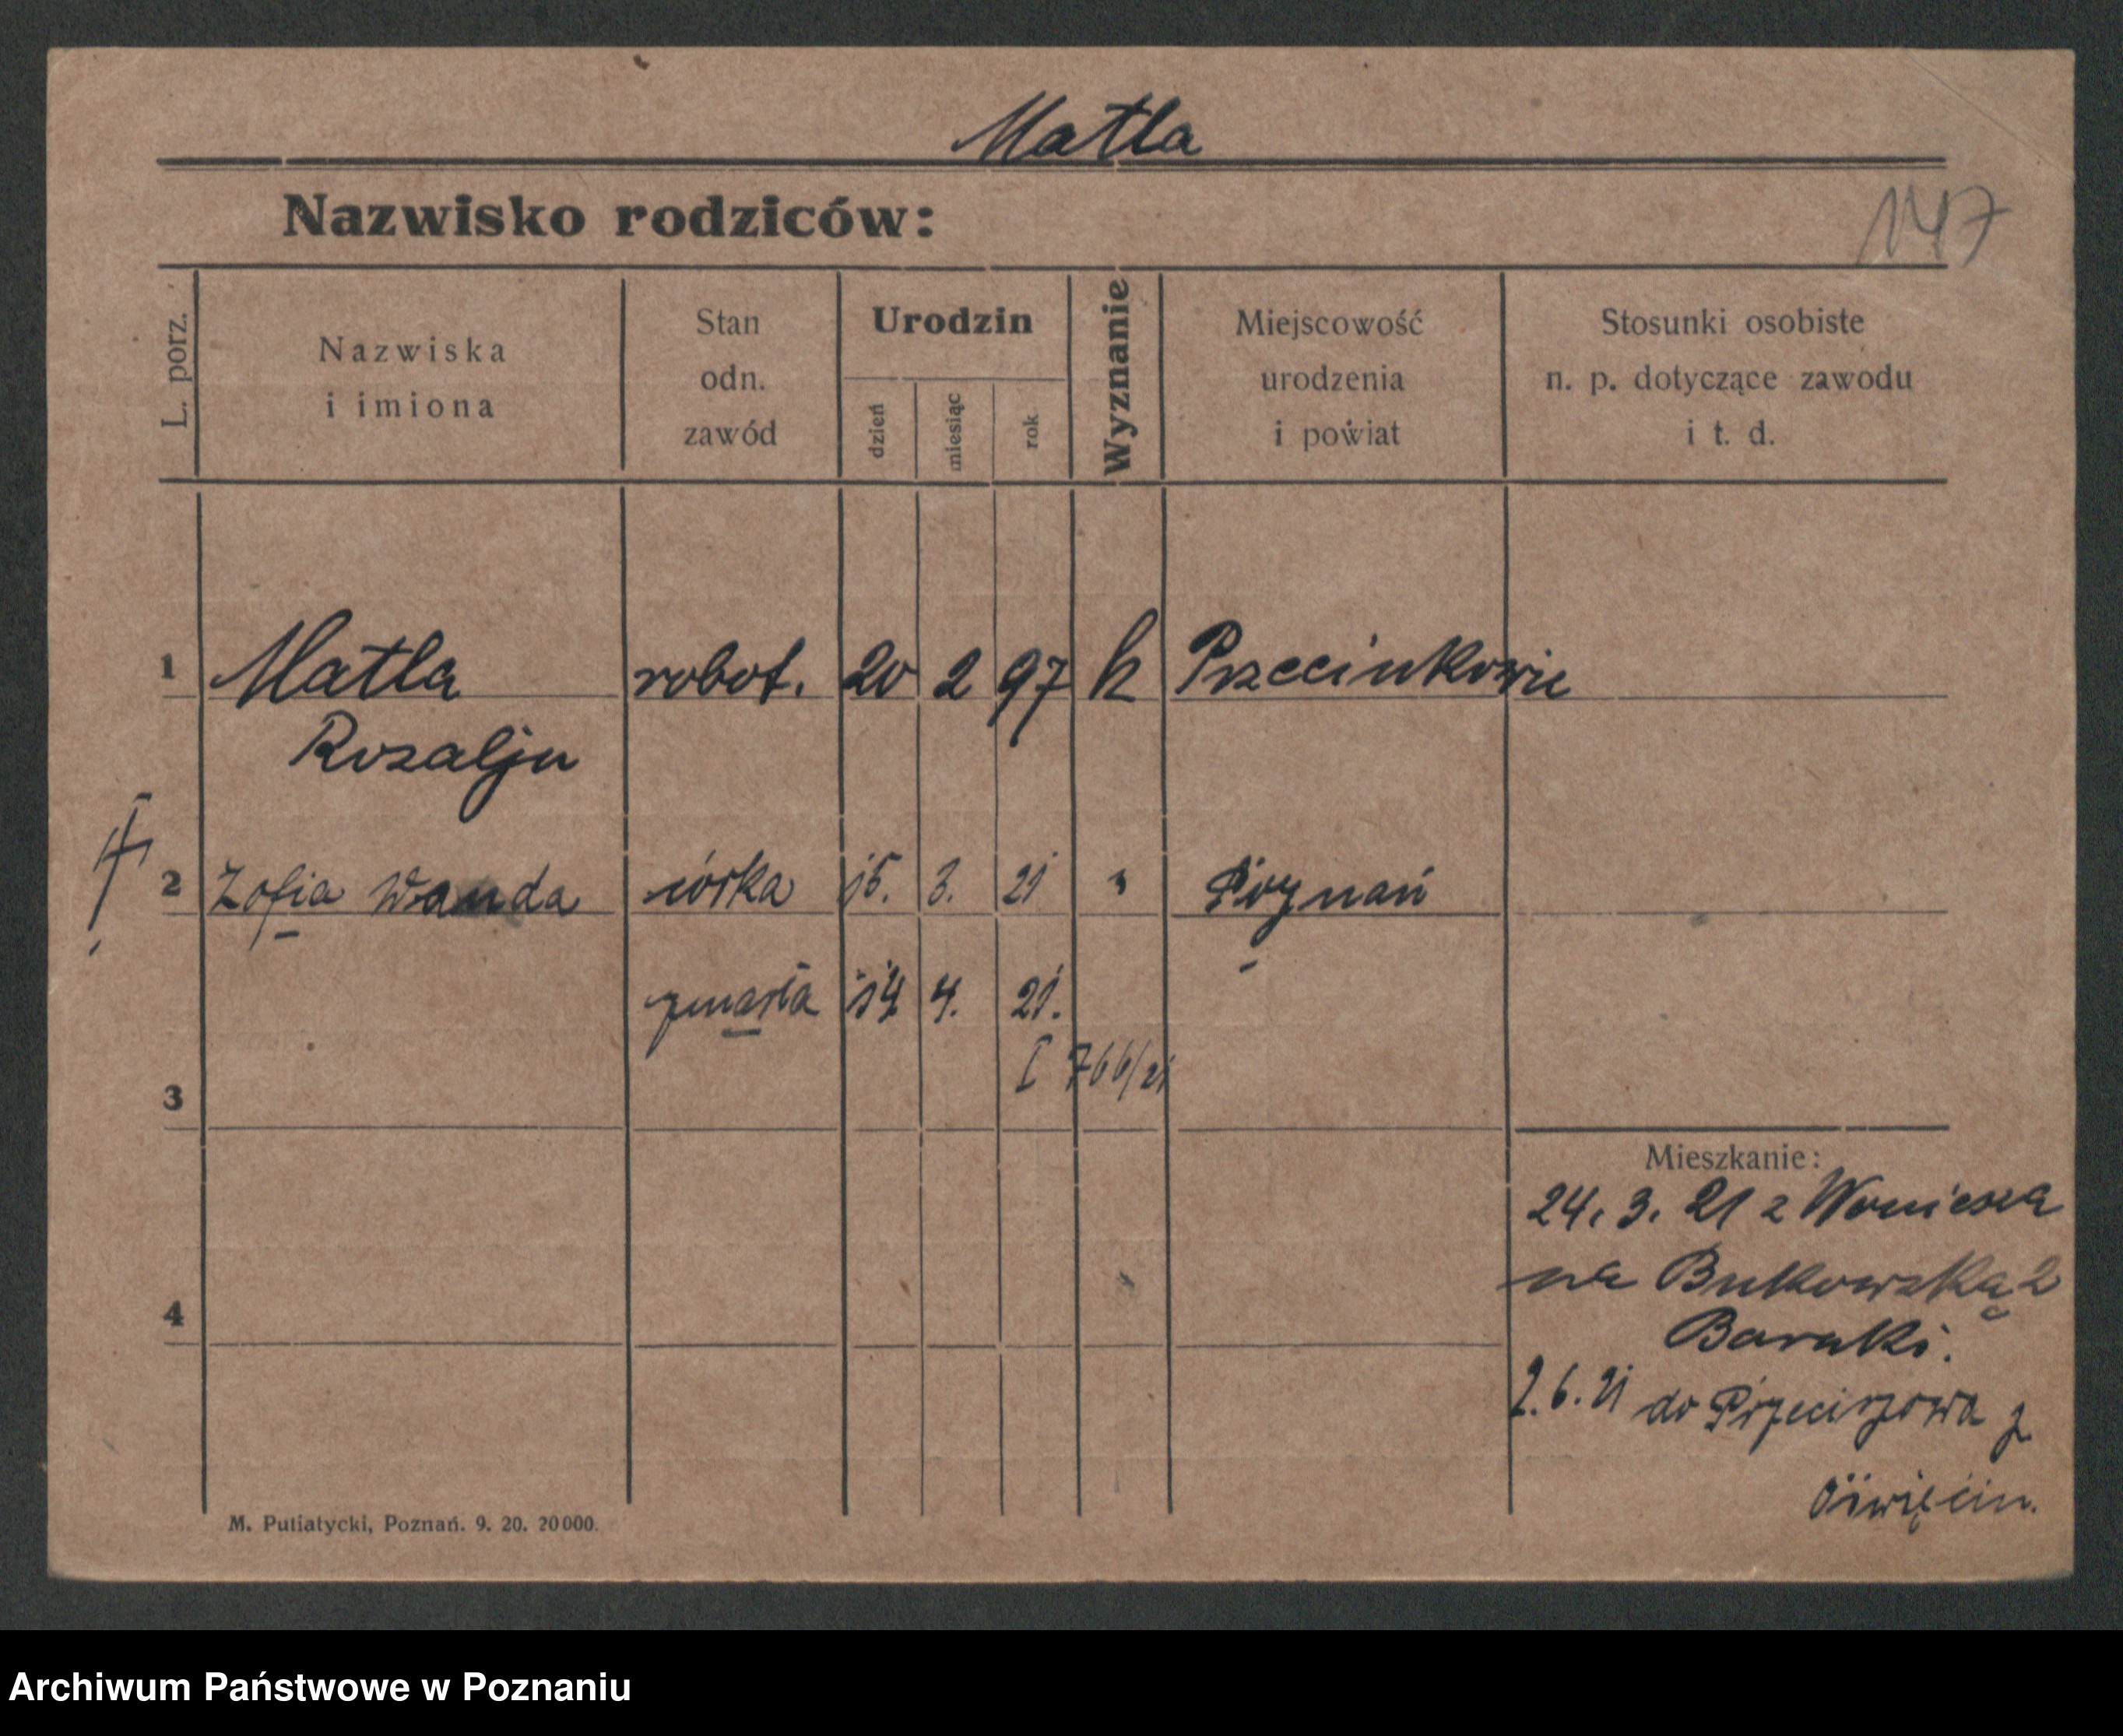 Matla
Nazwisko rodziców:
147
L. porz.
Nazwiska
i imiona
Stan
odn.
zawód
Urodzin
dzień
miesiąc
rok
Wyznanie
Miejscowość
urodzenia
i powiat
Stosunki osobiste
n. p. dotyczące zawodu
i t. d.
1 Matla robot. 20 2 97 k
Rozalja
2 Zofia Wanda córka 15. 3. 21 " Poznań
zmarła 14 4. 21.
I 766/21
3
Mieszkanie:
24. 3. 21 z
na Bukowską 2
4
Baraki.
2.6.21 do Przeciszowa
Oświęcim.
M. Putiatycki, Poznań. 9. 20. 20000.
Archiwum Państwowe w Poznaniu